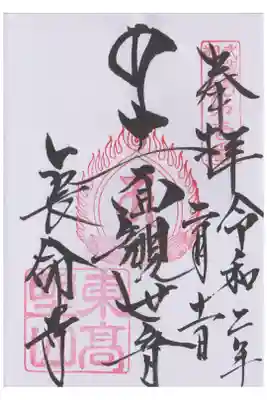 奉拝
令和二年
二月十一日
十一面観世音
長命寺
東高
野山